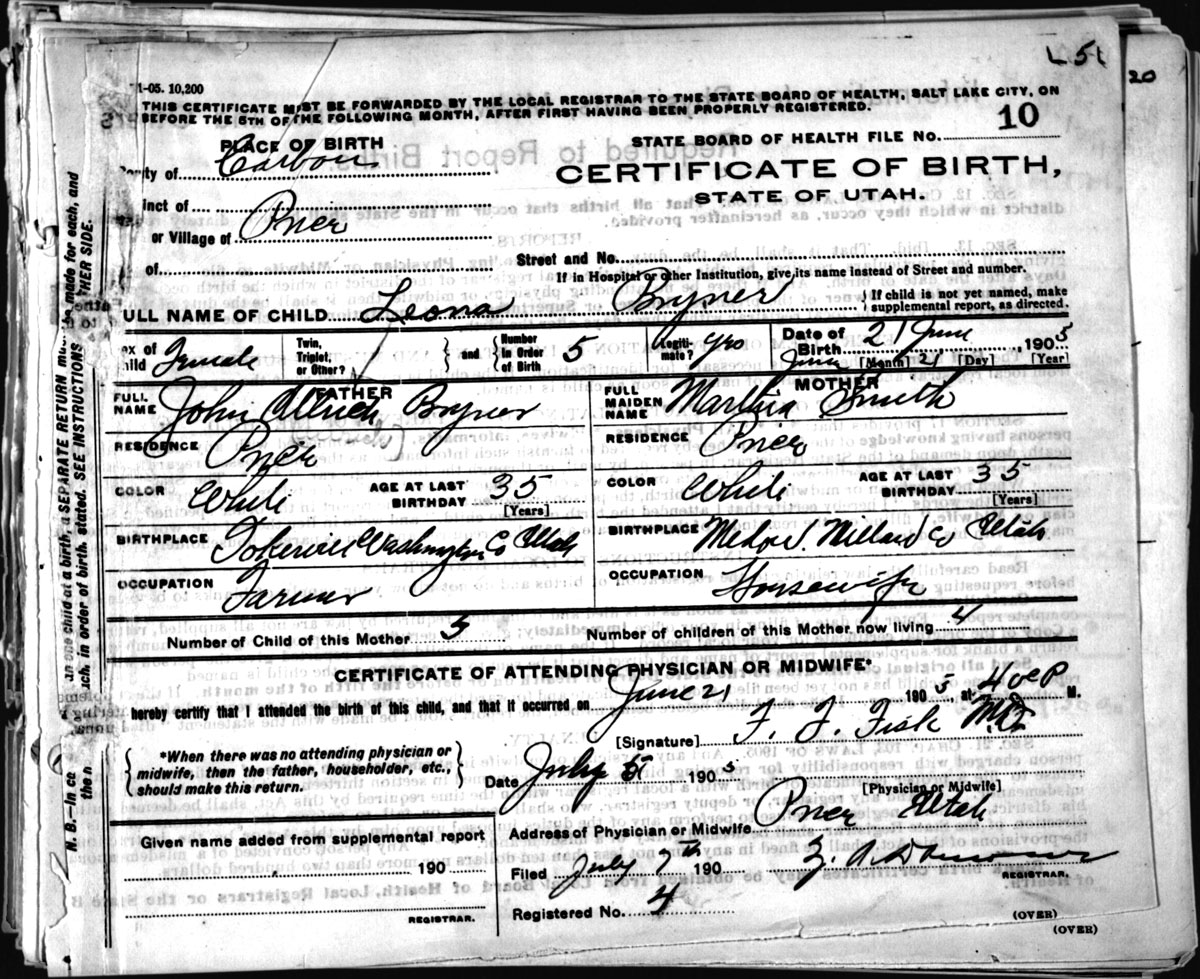 L 5t
20
1-05. 10,200
THIS CERTIFICATE MUST BE FORWARDED BY THE LOCAL REGISTRAR TO THE STATE BOARD OF HEALTH, SALT LAKE CITY, ON
BEFORE THE 5TH OF THE FOLLOWING MONTH, AFTER FIRST HAVING BEEN PROPERLY REGISTERED.
PLACE OF BIRTH
STATE BOARD OF HEALTH FILE NO. 10
unty of Carbon
CERTIFICATE OF BIRTH,
STATE OF UTAH.
inct of
or Village of Price
of
Street and No.
If in Hospital or other Institution, give its name instead of Street and number.
ULL NAME OF CHILD Leona Bryner { If child is not yet named, make supplemental report, as directed.
ex of hild Female Twin, Triplet, or Other? } and { Number in Order of Birth 5 Legiti- mate? yes Date of Birth 21 June, 1905
June [Month] 21 [Day] [Year]
FATHER MOTHER
FULL NAME John Ullrich Bryner FULL MAIDEN NAME Martha Smith
RESIDENCE Price RESIDENCE Price
COLOR White AGE AT LAST BIRTHDAY 35 [Years] COLOR White AGE AT LAST BIRTHDAY 35 [Years]
BIRTHPLACE Tokervill Washington Co Utah BIRTHPLACE Millard Co Utah
OCCUPATION Farmer OCCUPATION Housewife
Number of Child of this Mother 5 Number of children of this Mother now living 4
CERTIFICATE OF ATTENDING PHYSICIAN OR MIDWIFE*
hereby certify that I attended the birth of this child, and that it occurred on June 21 1905 at 4 P M.
[Signature] F. F. Fisk MD
{ *When there was no attending physician or
midwife, then the father, householder, etc.,
should make this return. }
Date July 1905
[Physician or Midwife]
Address of Physician or Midwife Price Utah
Given name added from supplemental report
190
REGISTRAR.
Filed July 7th 190
REGISTRAR.
Registered No. 4
(OVER)
(OVER)
N. B.—In ca an one child at a birth, a SEPARATE RETURN mu be made for each, and
then ach, in order of birth, stated. SEE INSTRUCTIONS THER SIDE.